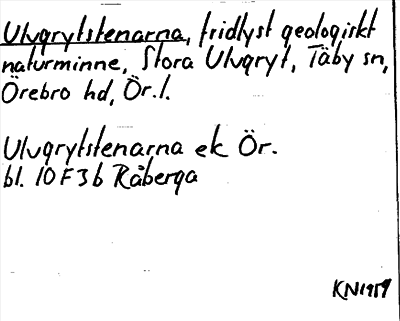 Ulvgrytstenarna, fridlyst geologiskt
naturminne, Stora Ulvgryt, Täby sn,
Örebro hd, Ör. l.
Ulvgrytstenarna ek Ör.
bl. 10 F 3 b Råberga
KN 1959